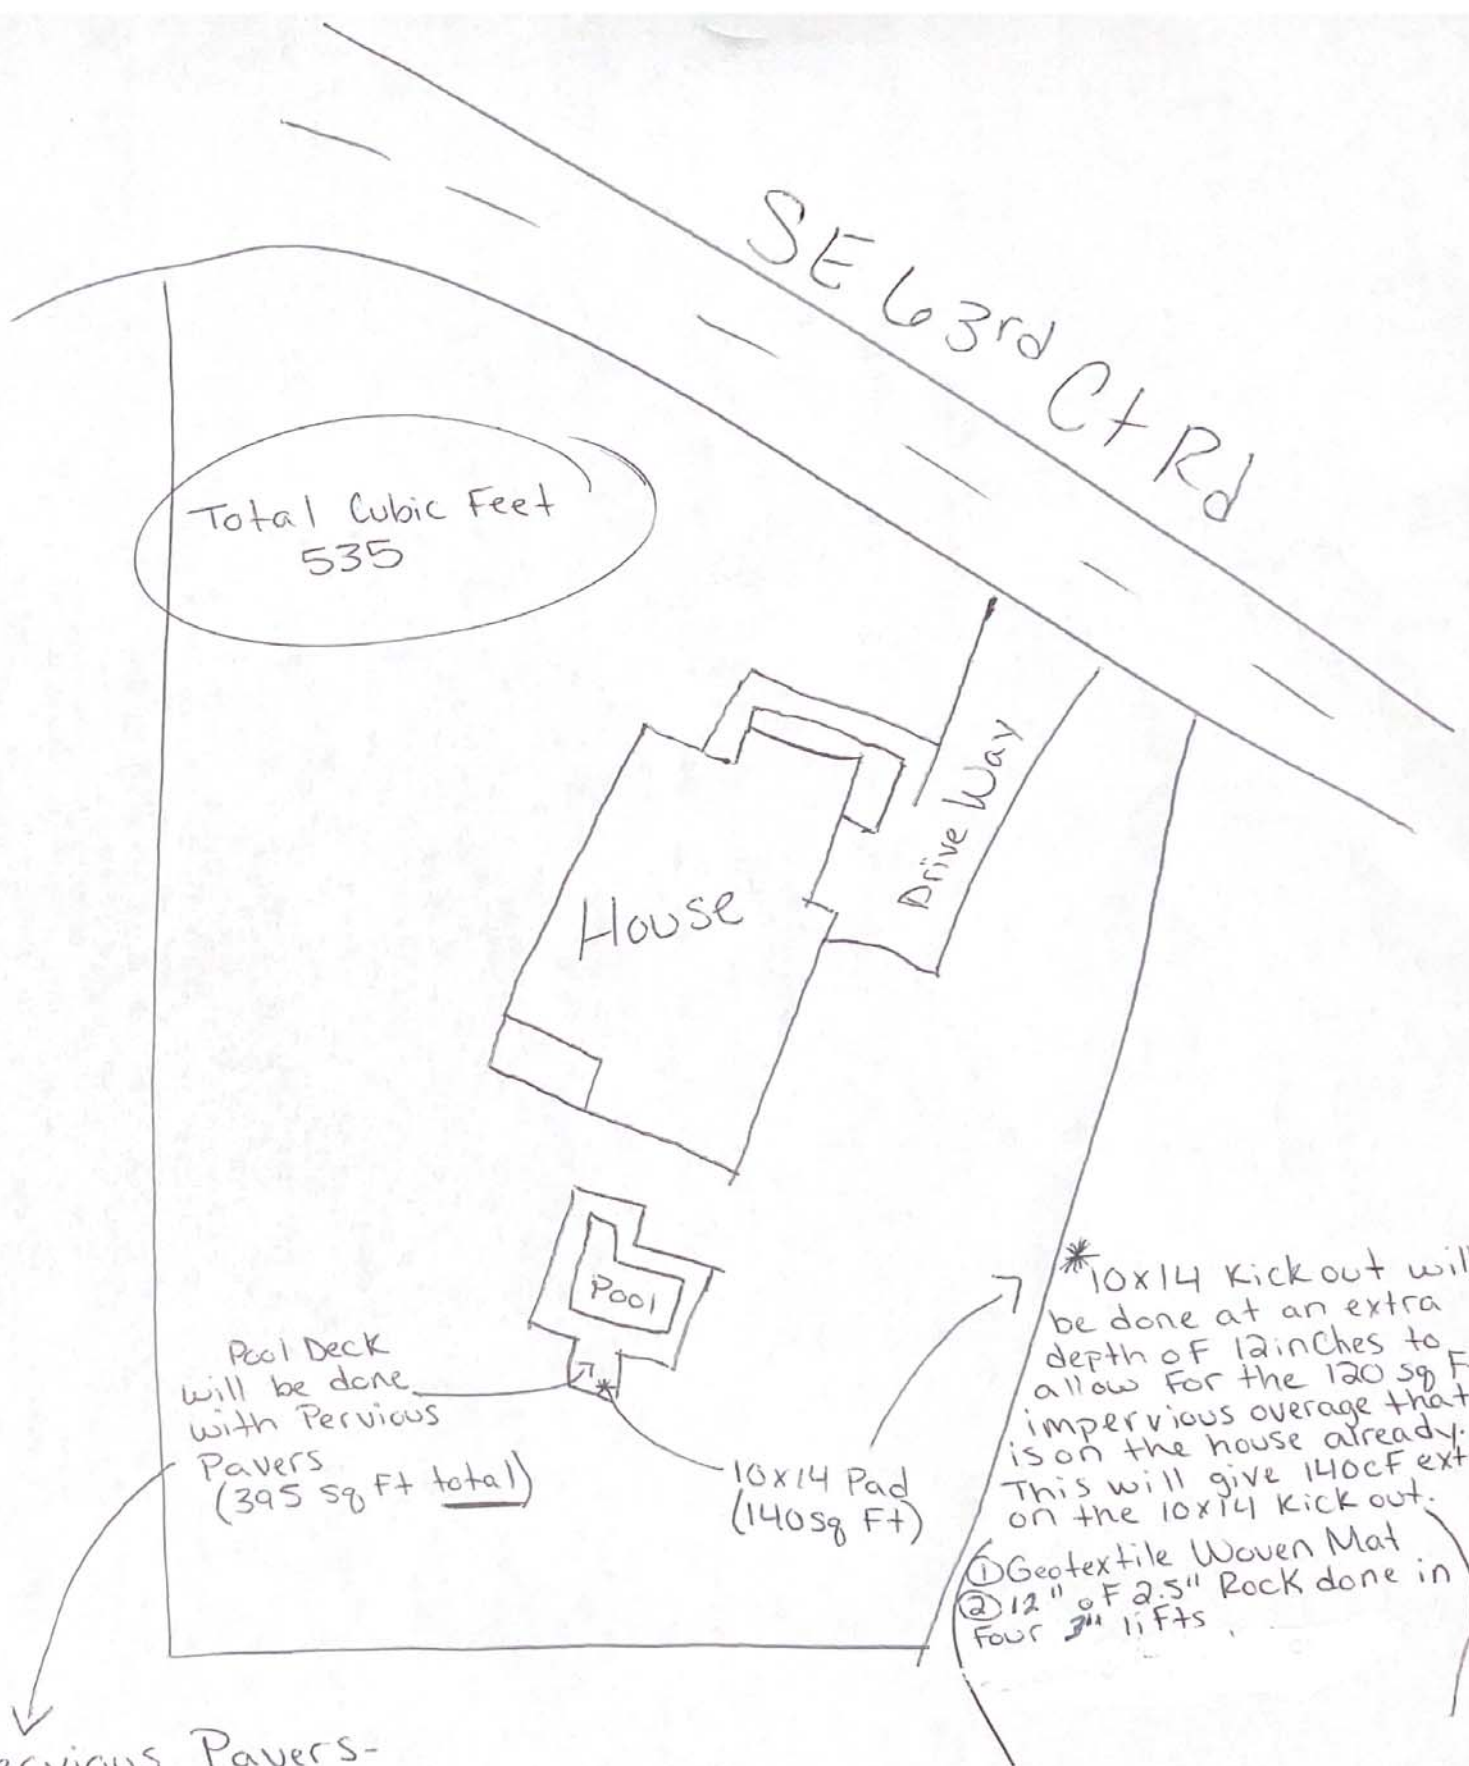 SE 63rd Ct Rd
Total Cubic Feet
535
Drive Way
House
Pool
Pool Deck
will be done
with Pervious
Pavers
(395 sq ft total)
10x14 Pad
(140 sq Ft)
*10x14 Kick out will
be done at an extra
depth of 12 inches to
allow for the 120 sq F
impervious overage that
is on the house already.
This will give 140cF ext
on the 10x14 Kick out.
① Geotextile Woven Mat
② 12" of 2.5" Rock done in
Four 3" lifts
ervious Pavers-